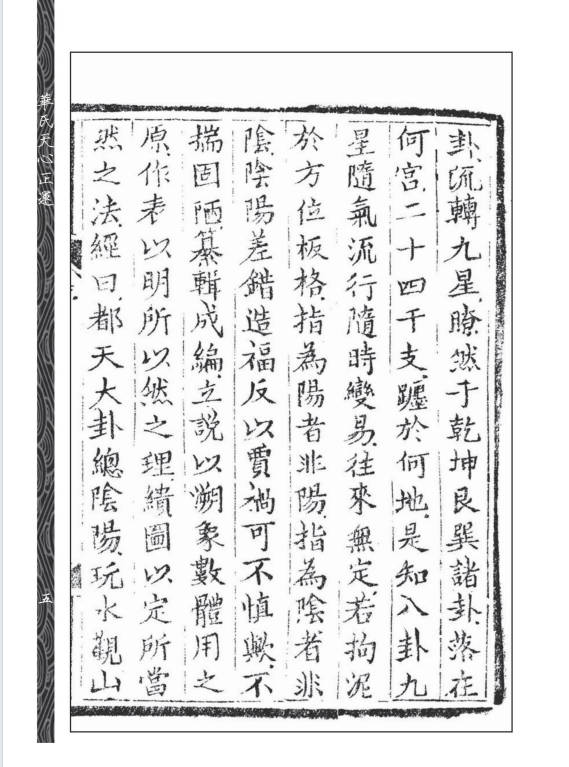 卦流轉九星瞭然于乾坤艮巽諸卦落在
何宮二十四干支躔於何地是知八卦九
星隨氣流行隨時變易往來無定若拘泥
於方位板格指為陽者非陽指為陰者非
陰陰陽差錯造福反以賈禍可不慎歟不
揣固陋纂輯成編立說以溯象數體用之
原作表以明所以然之理繢圖以定所當
然之法經曰都天大卦總陰陽玩水觀山
華氏天心正運
五